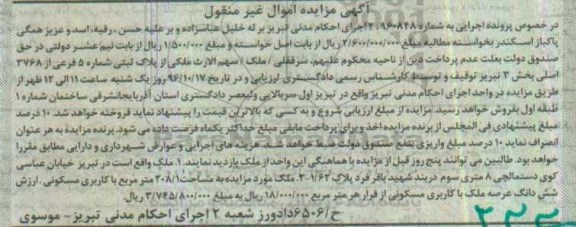 آگهی مزایده اموال غیر منقول
در خصوص پرونده اجرایی به شماره ۹۶۰۸۴۸ اجرای احکام مدنی تبریز بر له خلیل عباسزاده و بر علیه حسن ، رقیه، اسد و عزیز همگی
پاکباز اسکندر بخواسته مطالبه مبلغ ۲/۶۰۰/۰۰۰/۰۰۰ ریال از بابت اصل خواسته و مبلغ ۱/۵۰۰/۰۰۰ ریال از بابت نیم عشر دولتی در حق
صندوق دولت بعلت عدم پرداخت دین از ناحیه محکوم علیهم، سرقفلی / ملک / سهم الارث ملکی از پلاک ثبتی شماره ۵ فرعی از ۳۷۶۸
اصلی بخش ۳ تبریز توقیف و توسط کارشناس رسمی دادگستری ارزیابی و در تاریخ ۹۶/۱۰/۱۷ روز یک شنبه ساعت ۱۱ الی ۱۲ ظهر از
طریق مزایده در واحد اجرای احکام مدنی تبریز واقع در تبریز اول سربالایی ولیعصر دادگستری استان آذربایجانشرقی ساختمان شماره ۱
طبقه اول بفروش خواهد رسید. مزایده از مبلغ ارزیابی شروع و به کسی که بالاترین قیمت را پیشنهاد نماید فروخته خواهد شد. ۱۰ درصد
مبلغ پیشنهادی فی المجلس از برنده مزایده اخذ و برای پرداخت مابقی مبلغ حداکثر یکماه فرصت داده می شود. برنده مزایده به هر عنوان
انصراف نماید ۱۰ درصد مبلغ واریزی بنفع صندوق دولت ضبط خواهد شد. هزینه های اجرایی و عوارض شهرداری و دارایی مطابق مقررا
خواهد بود. طالبین می توانند پنج روز قبل از مزایده با هماهنگی این واحد از ملک بازدید نمایند. ۱. ملک واقع است در تبریز خیابان عباسی
کوی دستمالچی ۸ متری سوم دربند شهید باقر فرد پلاک ۲۰۱/۶۲. ملک مورد مزایده به مساحت ۲۰۸/۱ متر مربع با کاربری مسکونی. ارزش
شش دانگ عرصه ملک با کاربری مسکونی از قرار هر متر مربع ۱۸/۰۰۰/۰۰۰ ریال به مبلغ ۳/۷۴۵/۸۰۰/۰۰۰ ریال.
ح/۶۵۰۶ دادورز شعبه ۲ اجرای احکام مدنی تبریز - موسوی